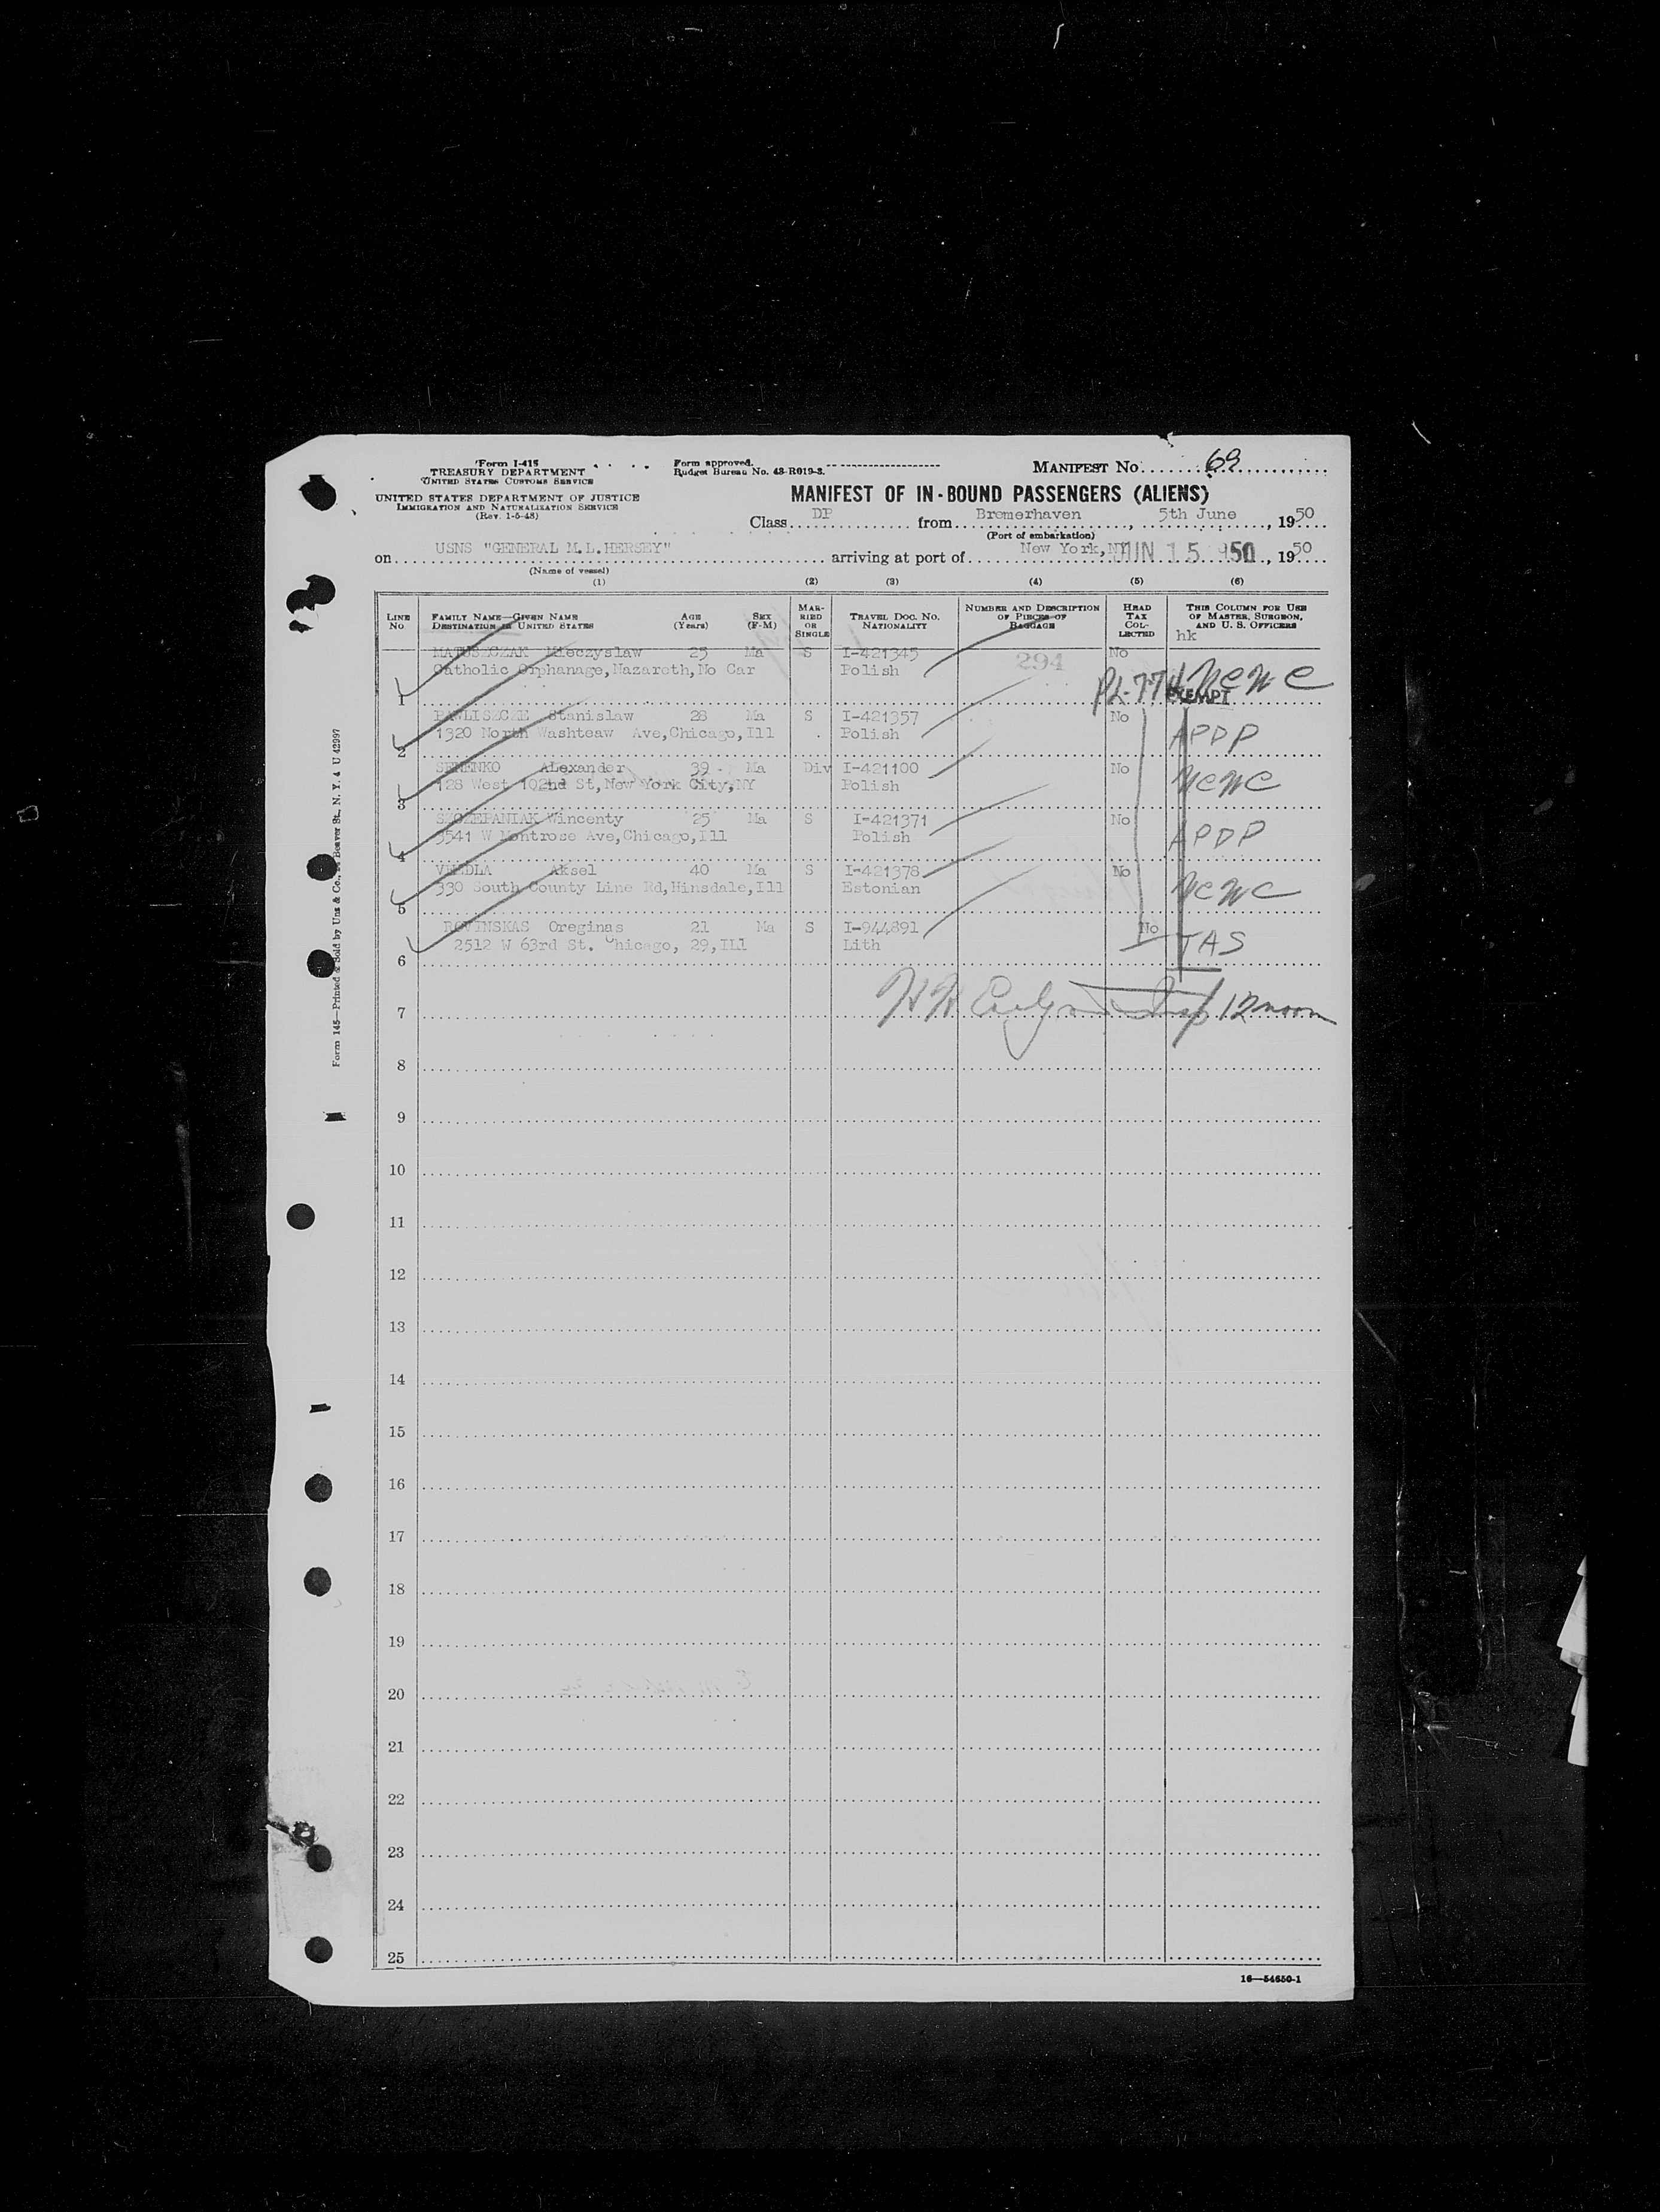 Form I-415
TREASURY DEPARTMENT
UNITED STATES CUSTOMS SERVICE
UNITED STATES DEPARTMENT OF JUSTICE
IMMIGRATION AND NATURALIZATION SERVICE
(Rev. 1-5-48)
Form approved.
Budget Bureau No. 43-R019-3.
MANIFEST No. 69
MANIFEST OF IN-BOUND PASSENGERS (ALIENS)
Class DP from Bremerhaven, 5th June, 1950
(Port of embarkation)
on USNS "GENERAL M.L.HERSEY" arriving at port of New York, NY JUN 15 950, 1950
(Name of vessel)
(1) (2) (3) (4) (5) (6)
LINE No FAMILY NAME—GIVEN NAME DESTINATION IN UNITED STATES AGE (Years) SEX (F-M) MARRIED OR SINGLE TRAVEL DOC. No. NATIONALITY NUMBER AND DESCRIPTION OF PIECES OF BAGGAGE HEAD TAX COLLECTED THIS COLUMN FOR USE OF MASTER, SURGEON, AND U. S. OFFICERS
hk
MATUSZCZAK Mieczyslaw 25 Ma S I-421345 294 No
Catholic Orphanage,Nazareth,No Car Polish
1 PL-774 NCWC
EXEMPT
PAWLISZCZE Stanislaw 28 Ma S I-421357 No
1320 North Washteaw Ave,Chicago,Ill Polish APDP
2
SEMENKO Alexander 39 Ma Div I-421100 No
128 West 102nd St,New York City,NY Polish NCWC
3
SZCZEPANIAK Wincenty 25 Ma S I-421371 No
3541 W Montrose Ave,Chicago,Ill Polish APDP
4
VEEDLA Aksel 40 Ma S I-421378 No
330 South County Line Rd,Hinsdale,Ill Estonian NCWC
5
ROVINSKAS Oreginas 21 Ma S I-944891 No
2512 W 63rd St. Chicago, 29,Ill Lith IAS
6
7 12 noon
8
9
10
11
12
13
14
15
16
17
18
19
20
21
22
23
24
25
16—54650-1
Form 145—Printed & Sold by Unz & Co., Beaver St., N. Y. 4 U 42997